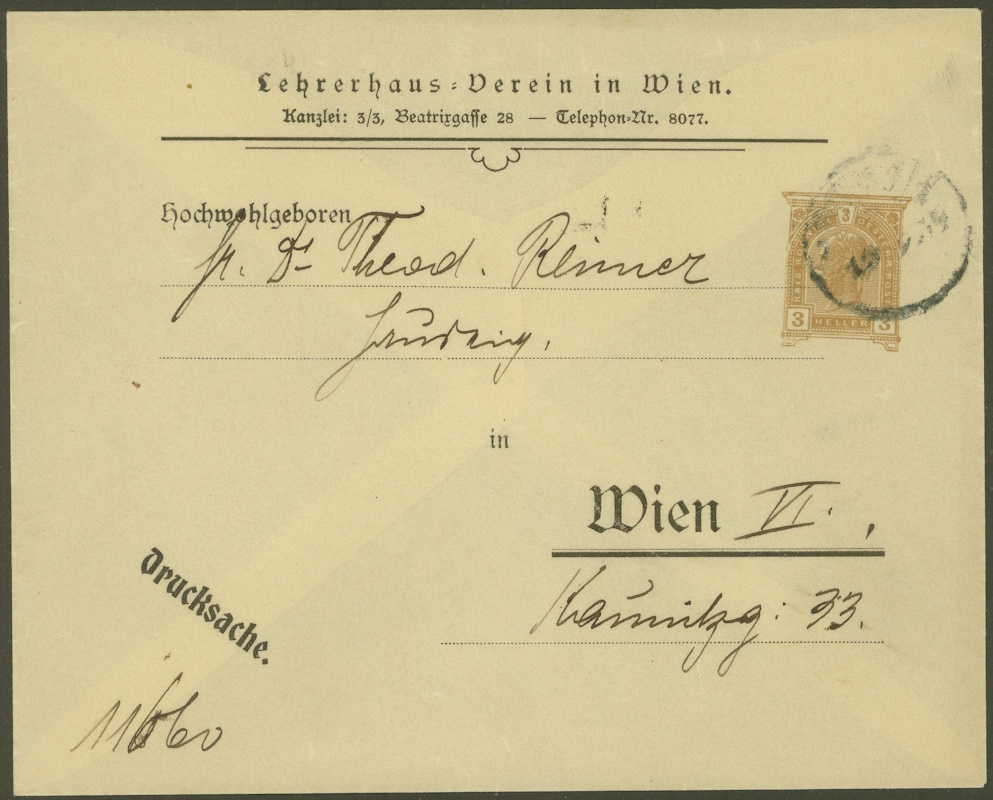 Lehrerhaus-Verein in Wien.
Kanzlei: 3/3, Beatrixgasse 28 — Telephon-Nr. 8077.
Hochwohlgeboren
Hr. Dr Theod. Renner
3
3 HELLER 3
in
Wien VI.,
Kaunitzg: 33.
Drucksache.